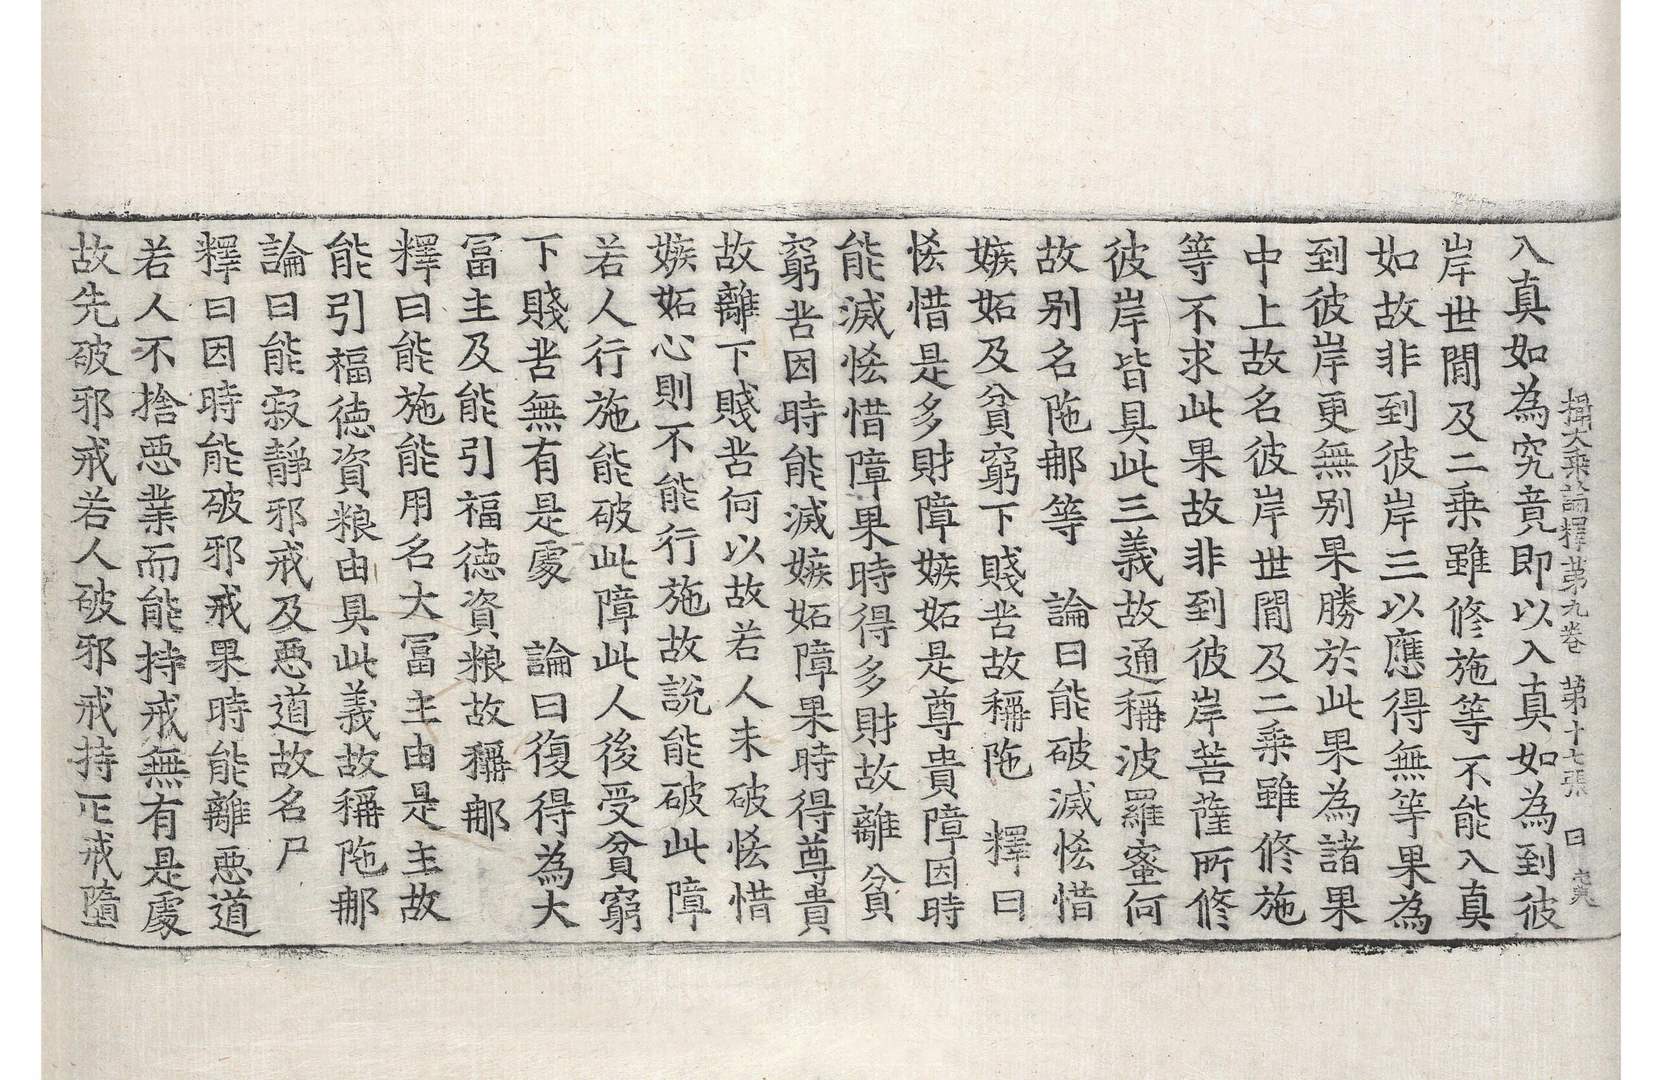 攝大乘論釋第九卷 第十七張 日
入真如為究竟即以入真如為到彼
岸世間及二乘雖修施等不能入真
如故非到彼岸三以應得無等果為
到彼岸更無别果勝於此果為諸果
中上故名彼岸世間及二乘雖修施
等不求此果故非到彼岸菩薩所修
彼岸皆具此三義故通稱波羅蜜何
故别名陁那等 論曰能破滅恡惜
嫉妬及貧窮下賤苦故稱陁 釋曰
恡惜是多財障嫉妬是尊貴障因時
能滅恡惜障果時得多財故離貧
窮苦因時能滅嫉妬障果時得尊貴
故離下賤苦何以故若人未破恡惜
嫉妬心則不能行施故說能破此障
若人行施能破此障此人後受貧窮
下賤苦無有是處 論曰復得為大
冨主及能引福德資粮故稱那
釋曰能施能用名大冨主由是主故
能引福德資粮由具此義故稱陁那
論曰能寂靜邪戒及惡道故名尸
釋曰因時能破邪戒果時能離惡道
若人不捨惡業而能持戒無有是處
故先破邪戒若人破邪戒持正戒墮